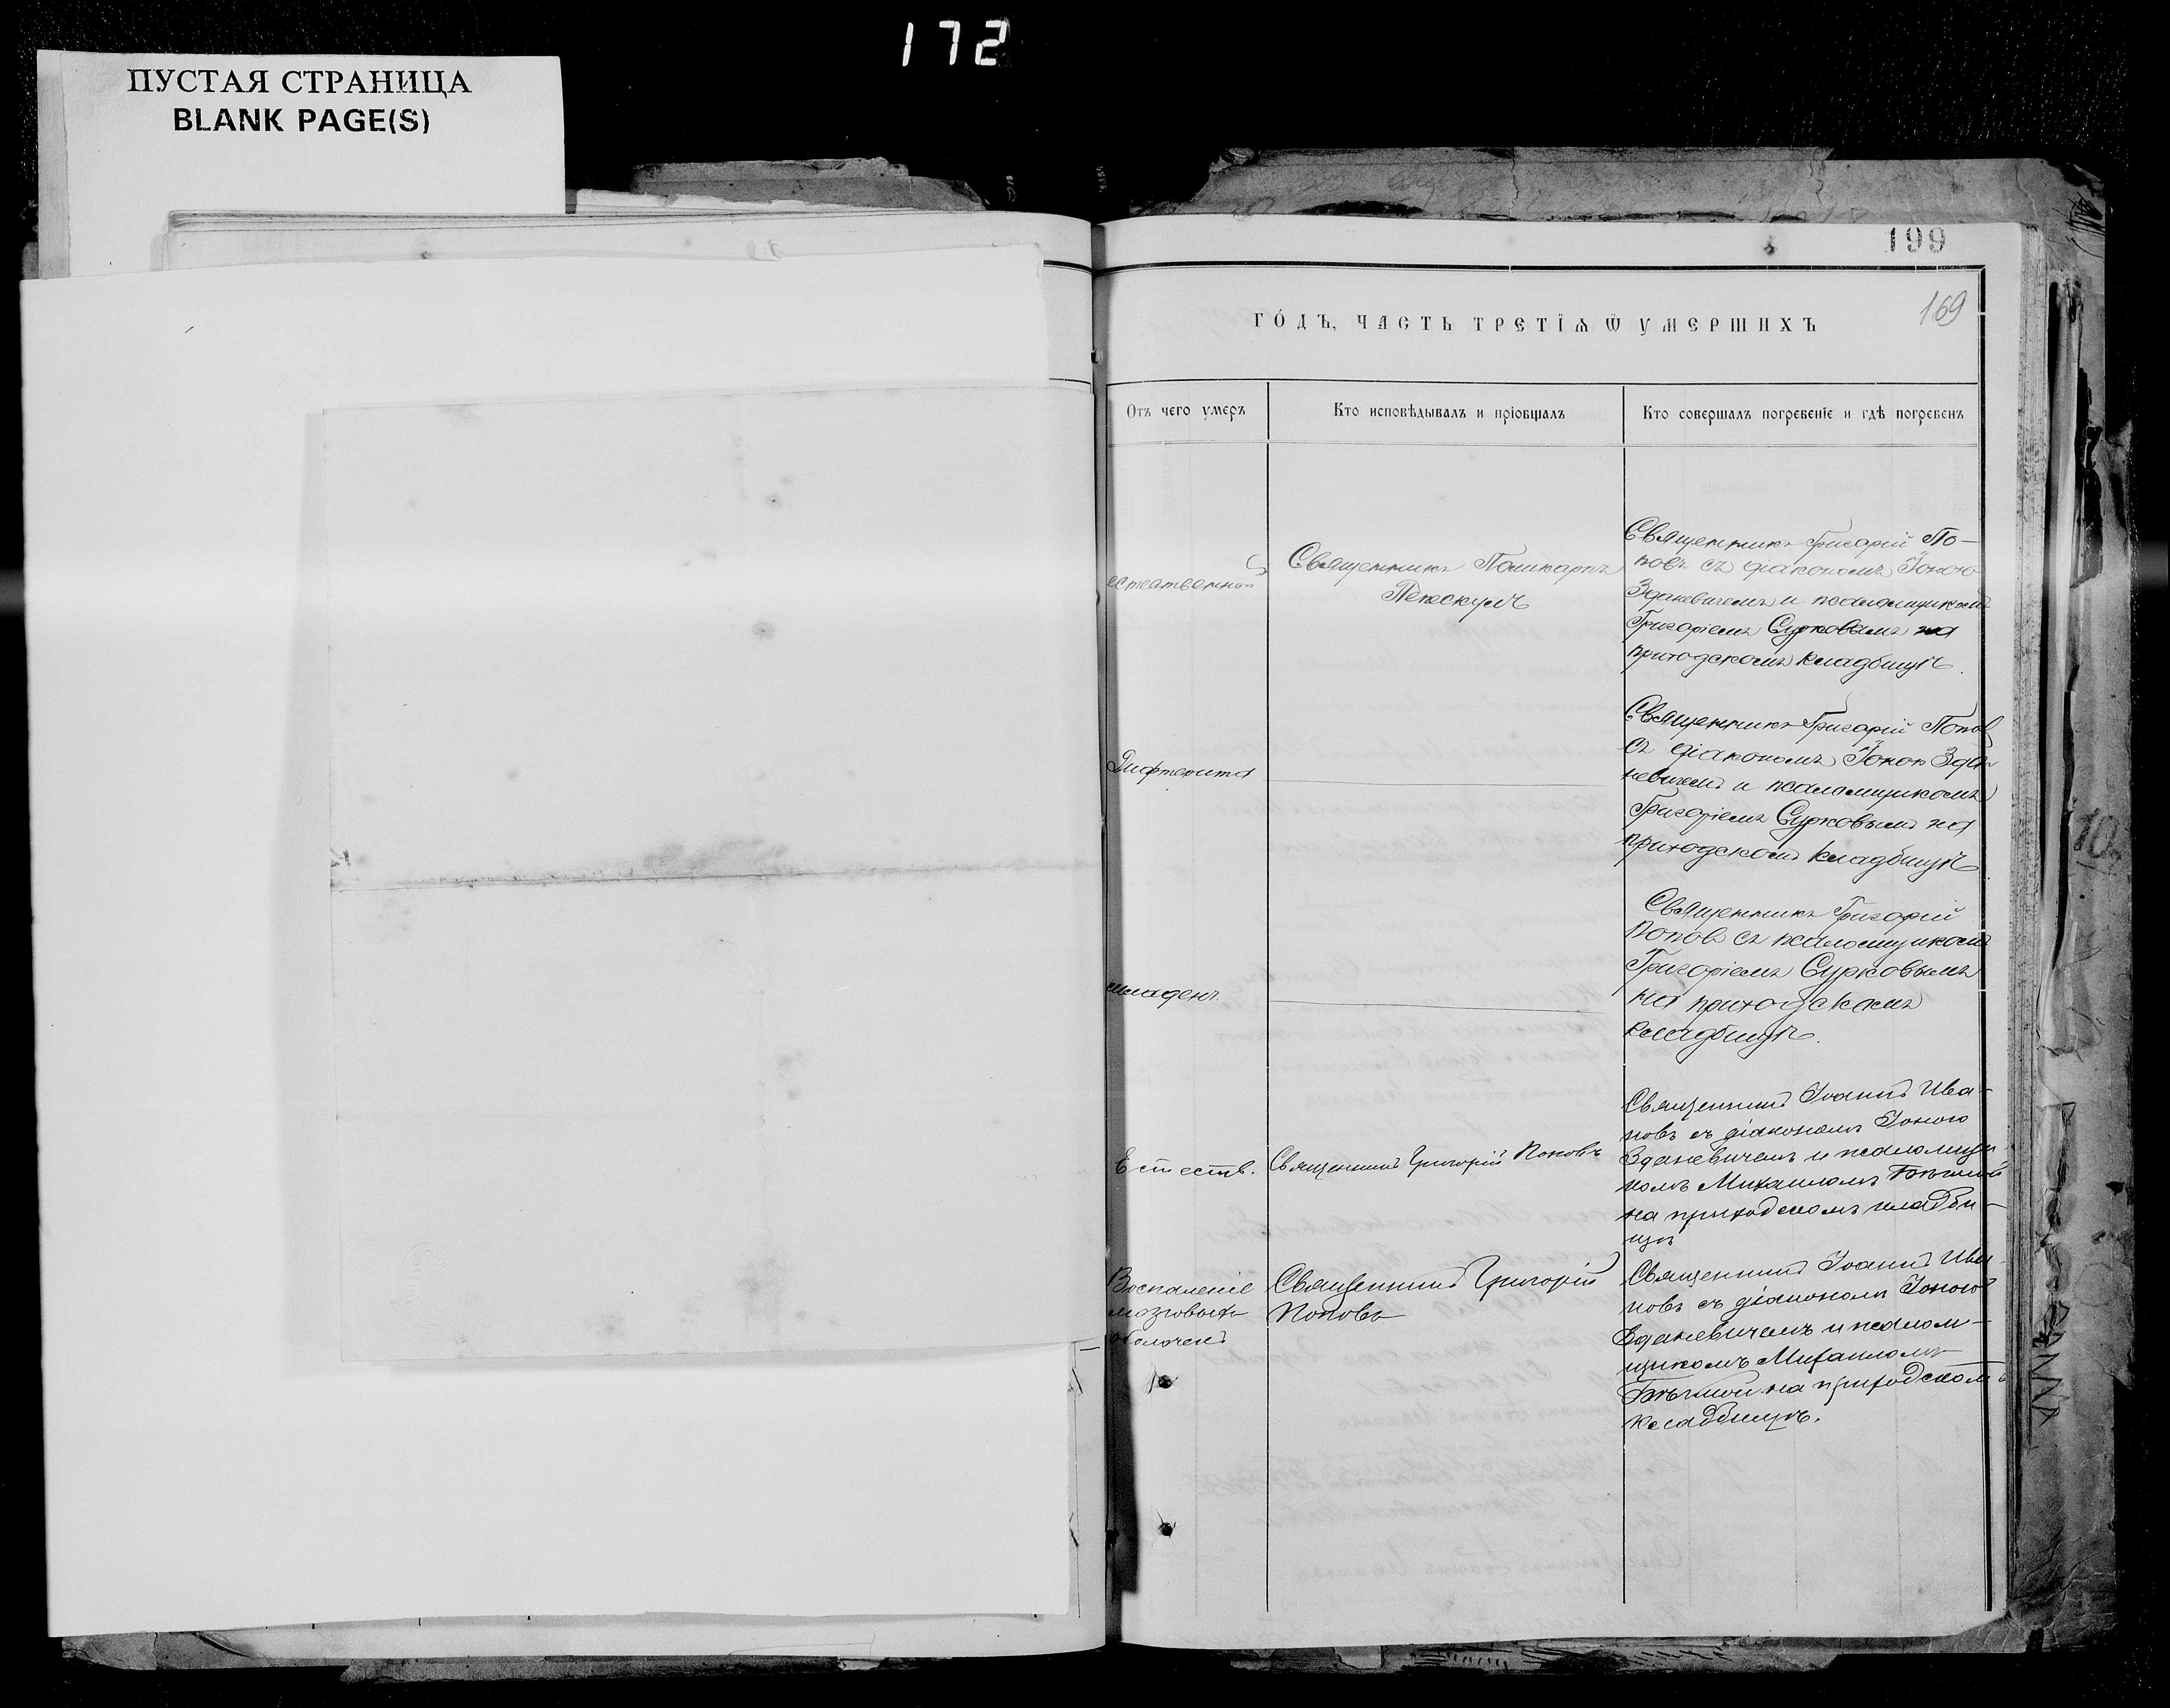 172
ПУСТАЯ СТРАНИЦА
BLANK PAGE(S)
199
169
ГО́ДЪ, ЧАСТЬ ТРЕТІѦ Ѿ УМЕРШИХЪ
Отъ чего умеръ
Кто исповѣдывалъ и пріобщалъ
Кто совершалъ погребеніе и гдѣ погребенъ
естественной
Священникъ Поликарпъ
Священникъ Григорій По-
повъ съ діакономъ Іоною
Зданевичемъ и псаломщикомъ
Григоріемъ Сурковымъ на
приходскомъ кладбищѣ.
Дифтерита
Священникъ Григорій Попов
съ діакономъ Іоною Зда-
невичемъ и псаломщикомъ
Григоріемъ Сурковымъ на
приходскомъ кладбищѣ.
младен.
Священникъ Григорій
Поповъ съ псаломщикомъ
Григоріемъ Сурковымъ
на приходскомъ
кладбищѣ.
Естеств.
Священникъ Григорій Поповъ
Священникъ Іоаннъ Ива-
новъ съ діакономъ Іоною
Зданевичемъ и псаломщи-
комъ Михаиломъ
на приходскомъ кладби-
щѣ
Воспаленіе
мозговыхъ
оболочекъ
Священникъ Григорій
Поповъ
Священникъ Іоаннъ Ива-
новъ съ діакономъ Іоною
Зданевичемъ и псалом-
щикомъ Михаиломъ
на приходскомъ
кладбищѣ.